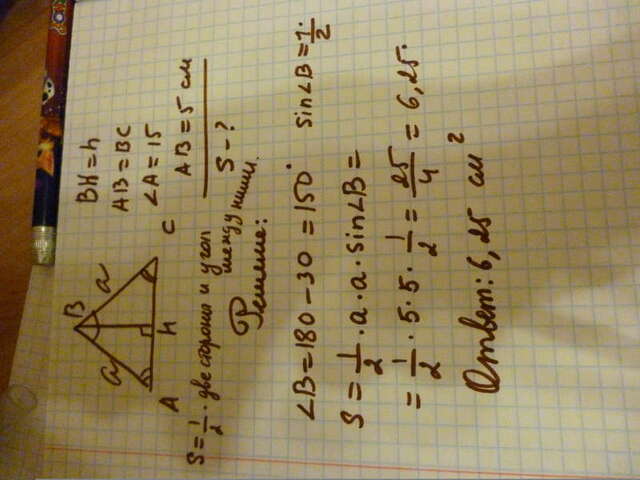 B
a a
A H C
BH = h
AB = BC
∠A = 15
AB = 5 см
S - ?
S = 1/2 · две стороны и угол
между ними.
Решение:
∠B = 180 - 30 = 150° sin∠B = 1/2.
S = 1/2 · a · a · sin∠B =
= 1/2 · 5 · 5 · 1/2 = 25/4 = 6,25.
Ответ: 6,25 см²